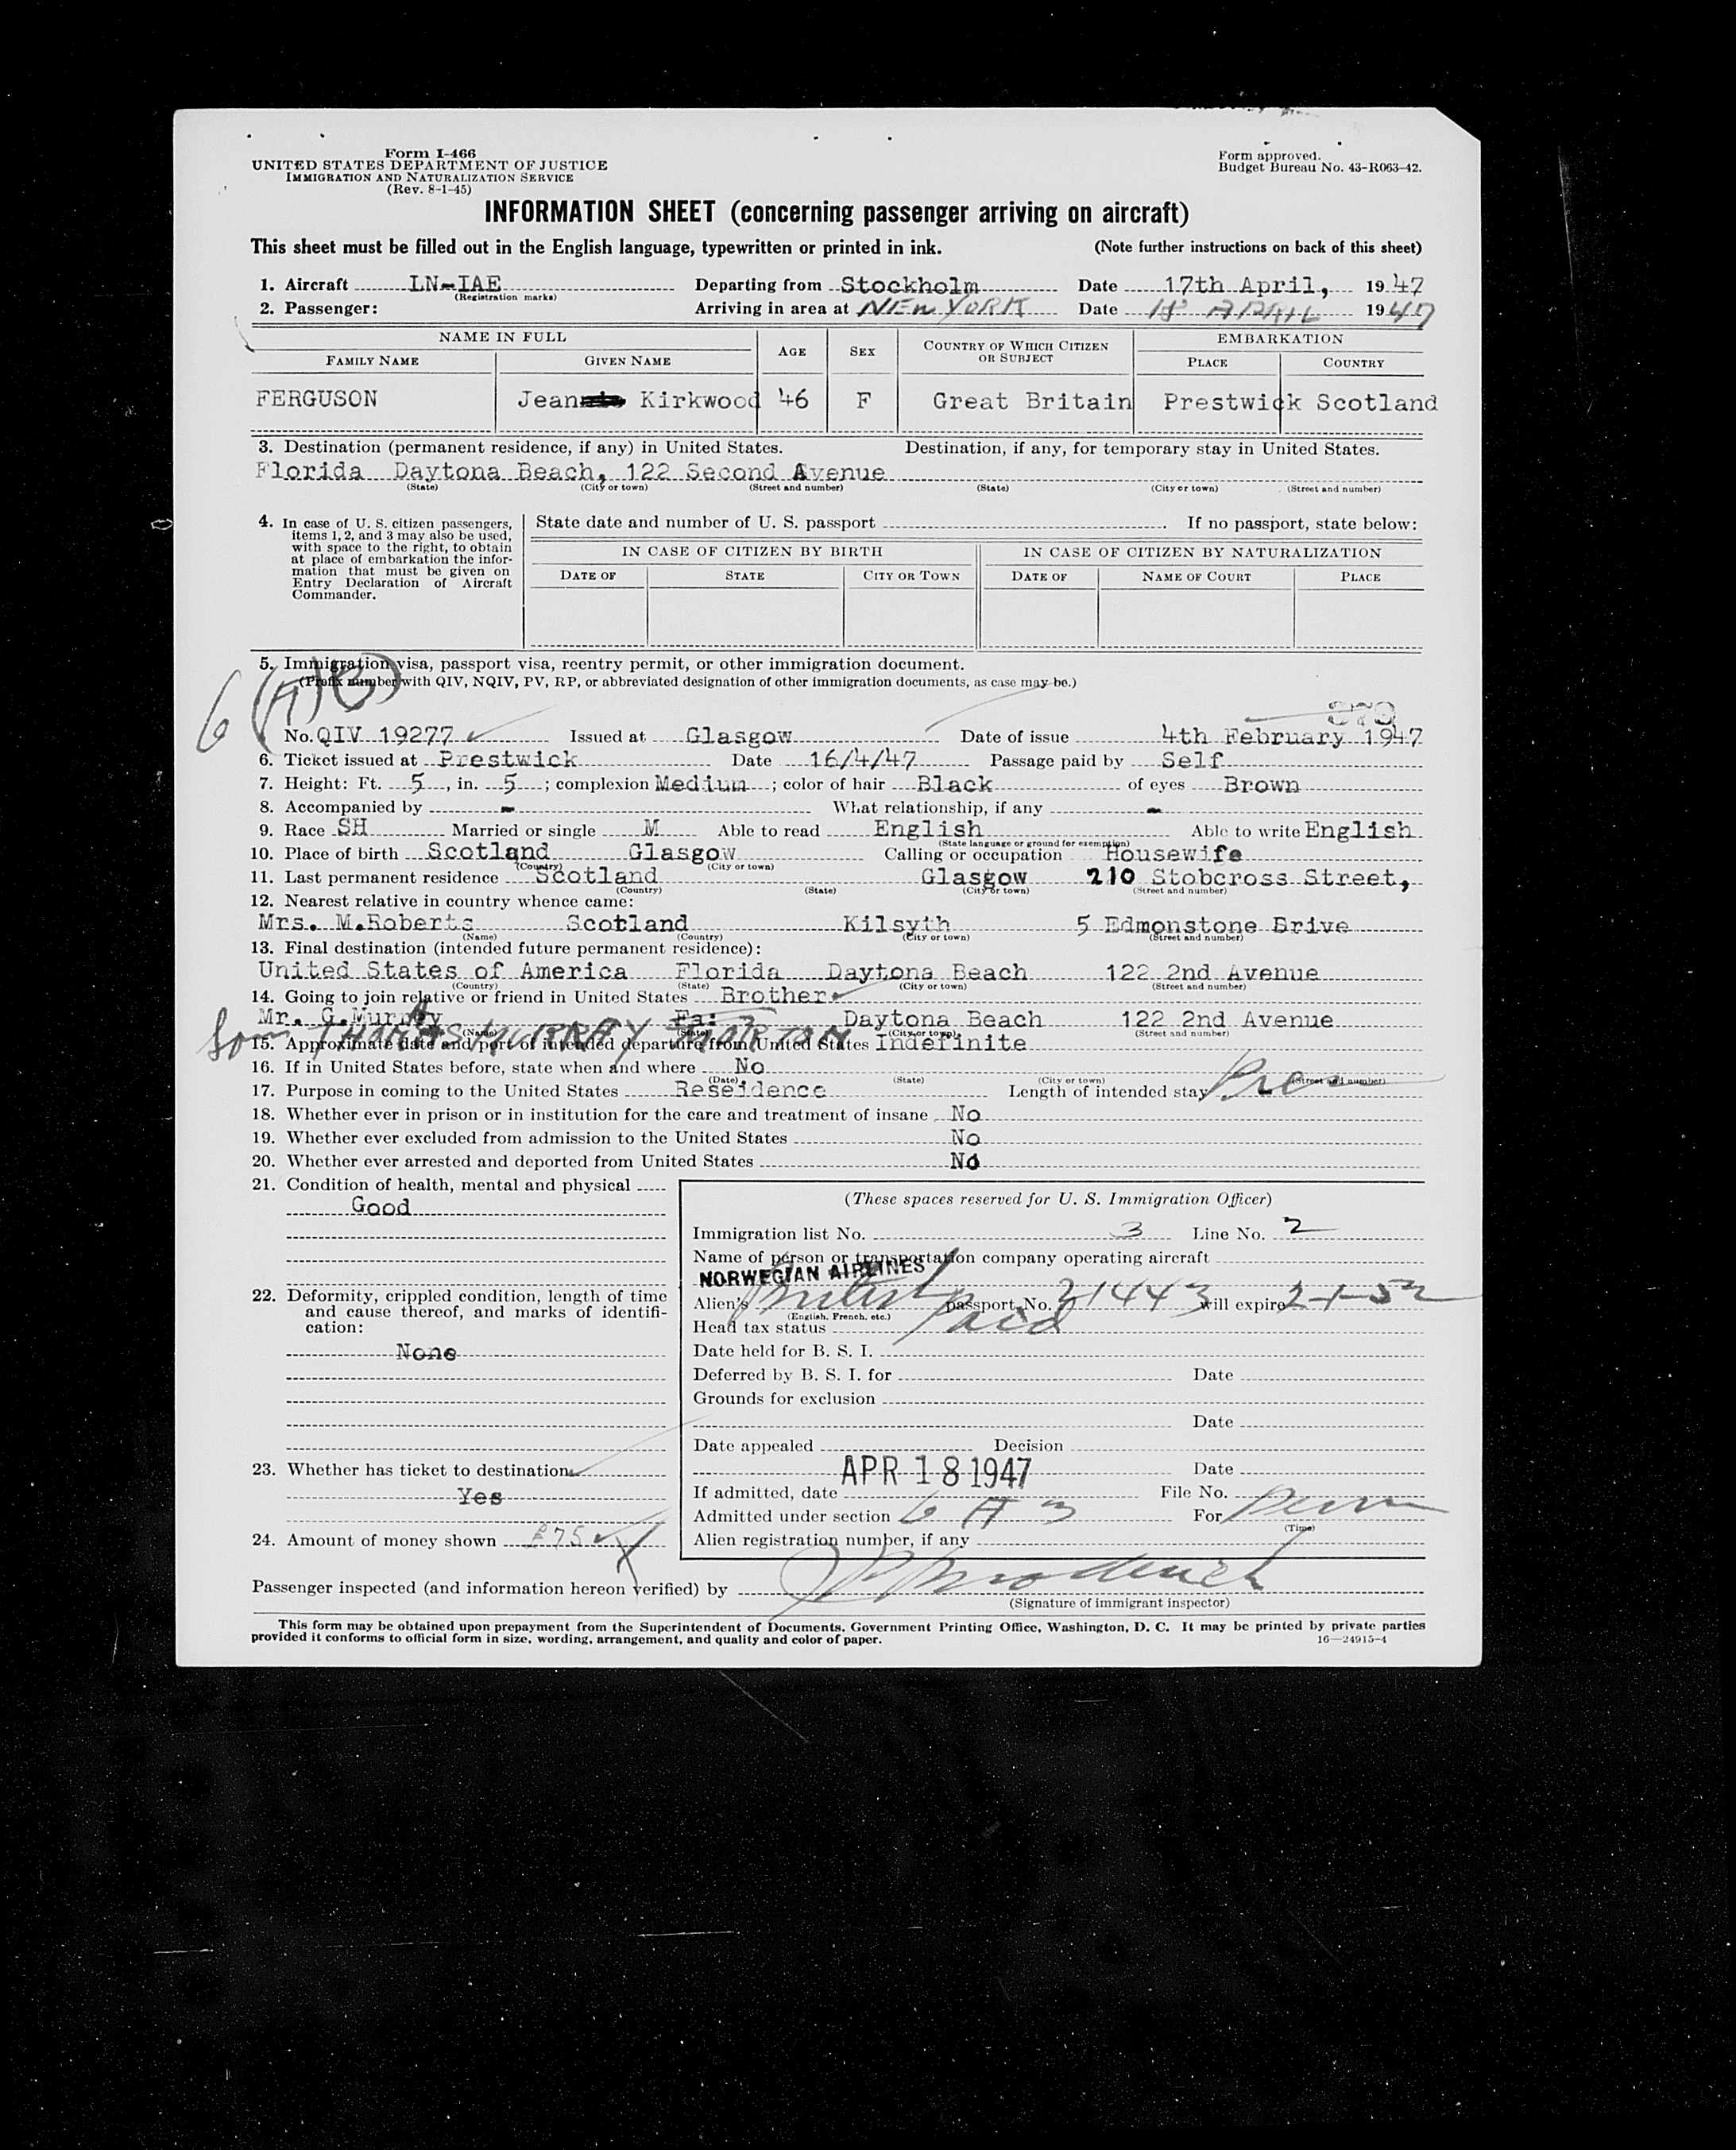 Form I-466
UNITED STATES DEPARTMENT OF JUSTICE
IMMIGRATION AND NATURALIZATION SERVICE
(Rev. 8-1-45)
Form approved.
Budget Bureau No. 43-R063-42.
INFORMATION SHEET (concerning passenger arriving on aircraft)
This sheet must be filled out in the English language, typewritten or printed in ink. (Note further instructions on back of this sheet)
1. Aircraft LN-IAE Departing from Stockholm Date 17th April, 1947
(Registration marks)
2. Passenger: Arriving in area at NEW YORK Date 18 APRIL 1947
NAME IN FULL AGE SEX COUNTRY OF WHICH CITIZEN OR SUBJECT EMBARKATION
FAMILY NAME GIVEN NAME PLACE COUNTRY
FERGUSON Jean Kirkwood 46 F Great Britain Prestwick Scotland
3. Destination (permanent residence, if any) in United States. Destination, if any, for temporary stay in United States.
Florida Daytona Beach, 122 Second Avenue
(State) (City or town) (Street and number) (State) (City or town) (Street and number)
4. In case of U. S. citizen passengers, items 1, 2, and 3 may also be used, with space to the right, to obtain at place of embarkation the information that must be given on Entry Declaration of Aircraft Commander.
State date and number of U. S. passport . If no passport, state below:
IN CASE OF CITIZEN BY BIRTH IN CASE OF CITIZEN BY NATURALIZATION
DATE OF STATE CITY OR TOWN DATE OF NAME OF COURT PLACE
5. Immigration visa, passport visa, reentry permit, or other immigration document.
(Prefix number with QIV, NQIV, PV, RP, or abbreviated designation of other immigration documents, as case may be.)
6 (A)(3)
379
No. QIV 19277 Issued at Glasgow Date of issue 4th February 1947
6. Ticket issued at Prestwick Date 16/4/47 Passage paid by Self
7. Height: Ft. 5, in. 5; complexion Medium; color of hair Black of eyes Brown
8. Accompanied by - What relationship, if any -
9. Race SH Married or single M Able to read English Able to write English
(State language or ground for exemption)
10. Place of birth Scotland Glasgow Calling or occupation Housewife
(Country) (City or town)
11. Last permanent residence Scotland Glasgow 210 Stobcross Street,
(Country) (State) (City or town) (Street and number)
12. Nearest relative in country whence came:
Mrs. M.Roberts Scotland Kilsyth 5 Edmonstone Drive
(Name) (Country) (City or town) (Street and number)
13. Final destination (intended future permanent residence):
United States of America Florida Daytona Beach 122 2nd Avenue
(Country) (State) (City or town) (Street and number)
14. Going to join relative or friend in United States Brother
Mr. G.Murray Fa: Daytona Beach 122 2nd Avenue
(Name) (State) (City or town) (Street and number)
THOMAS MURRAY MORTON
15. Approximate date and port of intended departure from United States Indefinite
16. If in United States before, state when and where No
(Date) (State) (City or town) (Street and number)
17. Purpose in coming to the United States Reseidence Length of intended stay
18. Whether ever in prison or in institution for the care and treatment of insane No
19. Whether ever excluded from admission to the United States No
20. Whether ever arrested and deported from United States No
21. Condition of health, mental and physical
Good
22. Deformity, crippled condition, length of time and cause thereof, and marks of identification:
None
23. Whether has ticket to destination
Yes
24. Amount of money shown £75
(These spaces reserved for U. S. Immigration Officer)
Immigration list No. 3 Line No. 2
Name of person or transportation company operating aircraft
NORWEGIAN AIRLINES
Alien's British passport No. 21443 will expire 2-1-52
(English, French, etc.)
Head tax status Paid
Date held for B. S. I.
Deferred by B. S. I. for Date
Grounds for exclusion
Date
Date appealed Decision
Date
If admitted, date APR 18 1947 File No.
Admitted under section 6 A 3 For Perm
(Time)
Alien registration number, if any
Passenger inspected (and information hereon verified) by
(Signature of immigrant inspector)
This form may be obtained upon prepayment from the Superintendent of Documents, Government Printing Office, Washington, D. C. It may be printed by private parties
provided it conforms to official form in size, wording, arrangement, and quality and color of paper. 16—24915-4